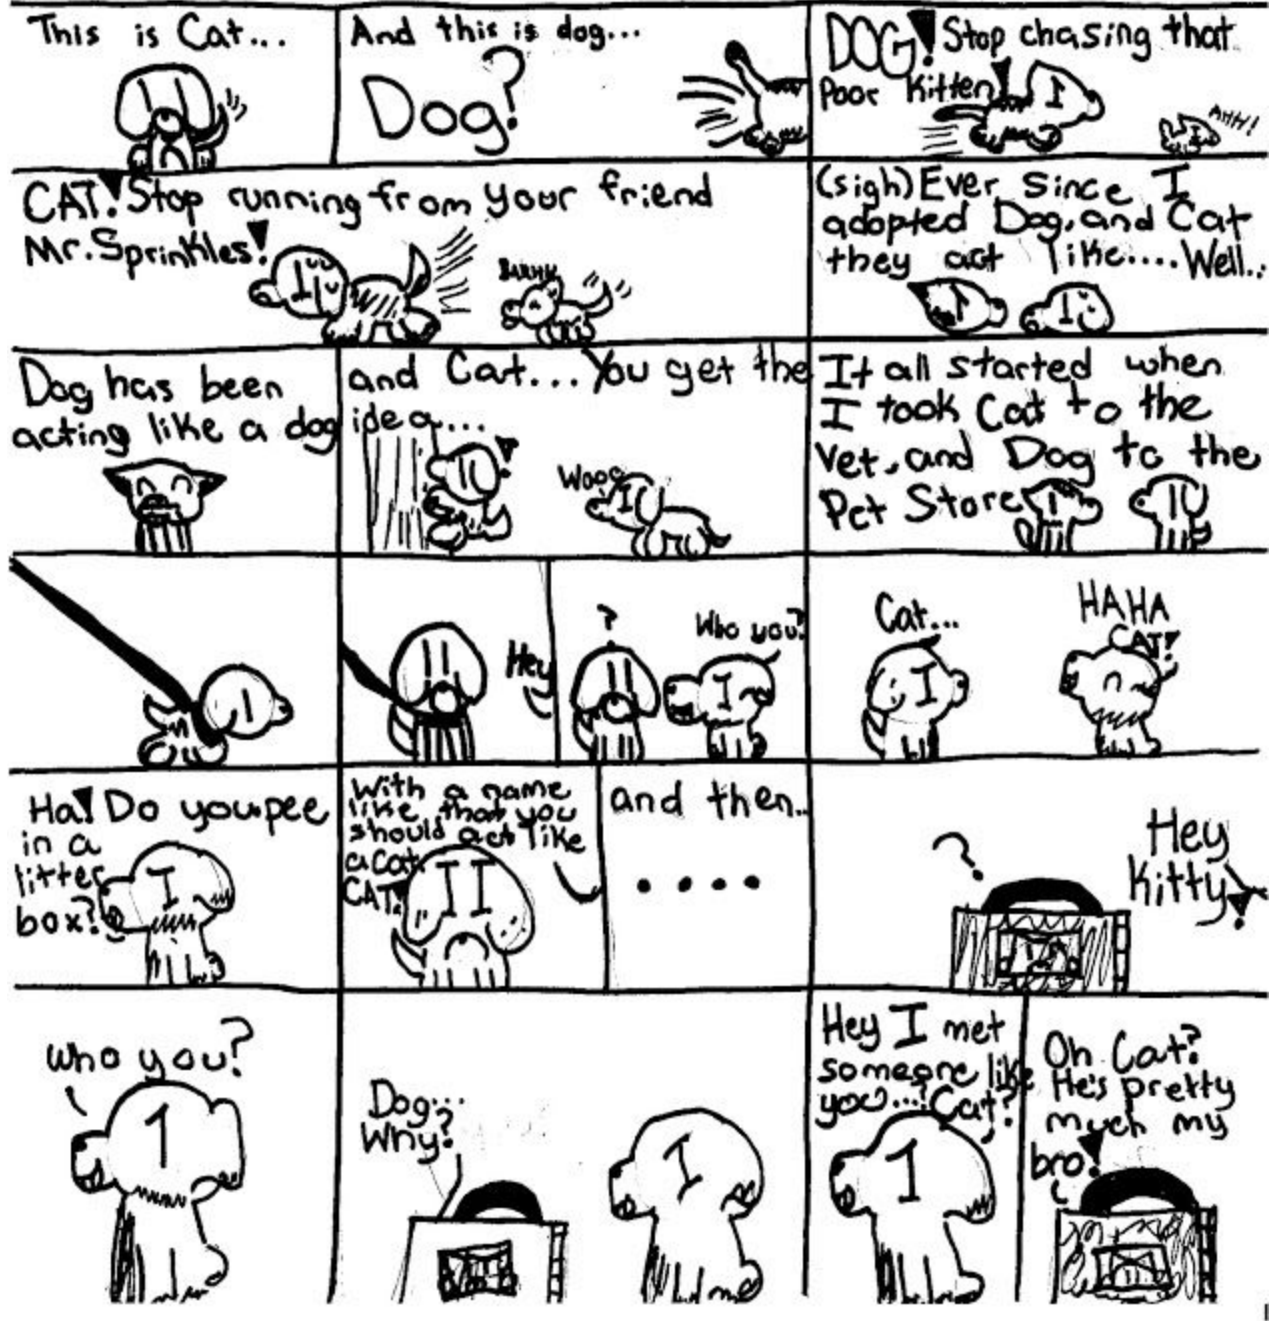 This is Cat...
And this is dog...
Dog?
DOG! Stop chasing that
Poor Kitten!
AHH!
CAT! Stop running from your friend
Mr. Sprinkles!
(sigh) Ever since I
adopted Dog, and Cat
they act like.... Well..
Dog has been
acting like a dog
and Cat... You get the
idea...
!
Woof
It all started when
I took Cat to the
Vet, and Dog to the
Pet Store
Hey
?
Who you?
Cat...
HAHA
CAT!
Ha! Do you pee
in a
litter
box?
With a name
like that you
should act like
a cat
CAT!
and then..
....
?
Hey
Kitty!
Who you?
Dog...
Why?
Hey I met
someone like
you...! Cat?
Oh Cat?
He's pretty
much my
bro!
1